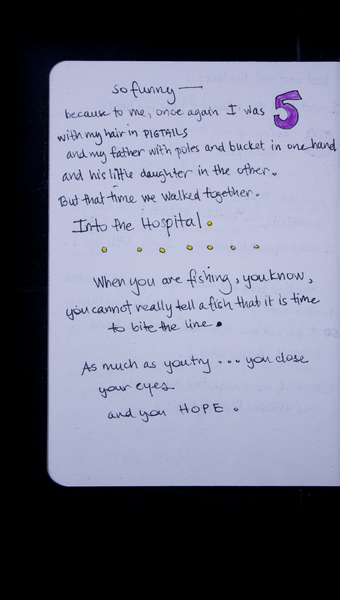 so funny —
because to me, once again I was 5
with my hair in PIGTAILS
and my father with poles and bucket in one hand
and his little daughter in the other.
But that time we walked together.
Into the Hospital.
When you are fishing, you know,
you cannot really tell a fish that it is time
to bite the line.
As much as you try ... you close
your eyes
and you HOPE.